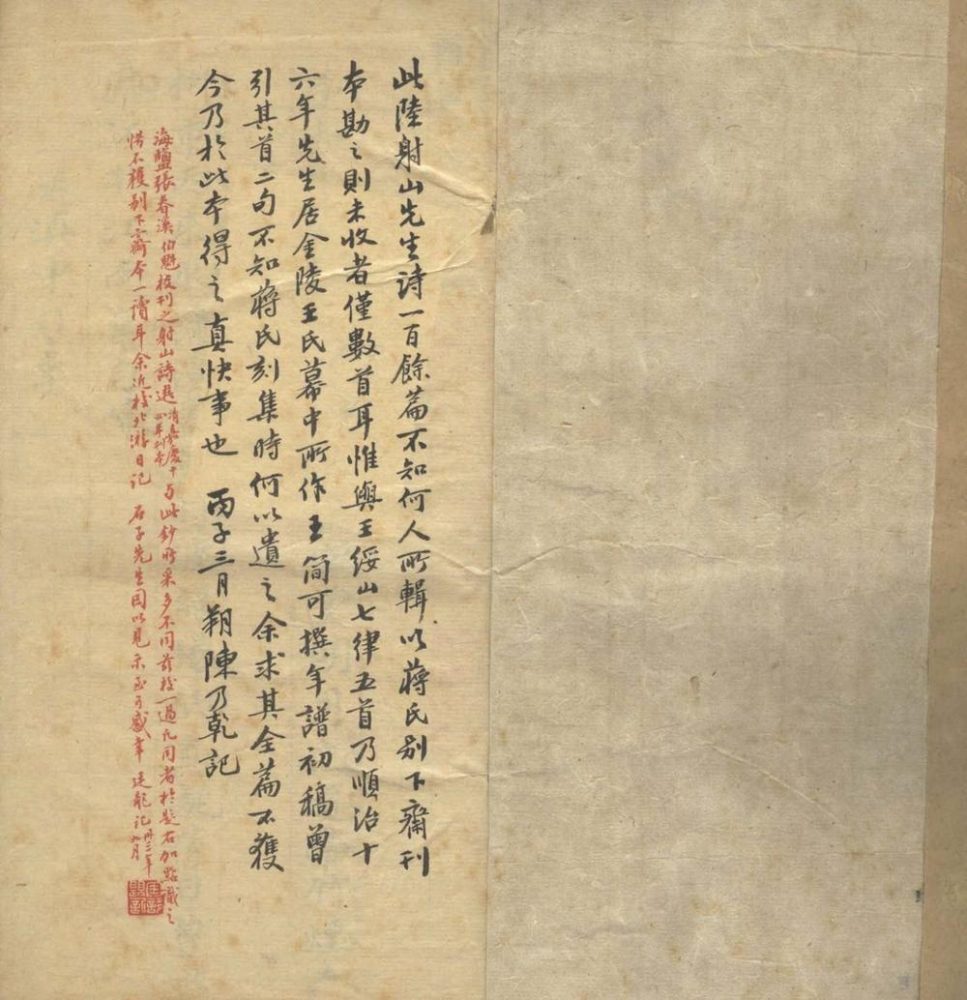 此陸射山先生詩一百餘篇不知何人所輯以蔣氏别下齋刊
本勘之則未收者僅數首耳惟與王綏山七律五首乃順治十
六年先生居金陵王氏幕中所作王簡可撰年譜初稿曾
引其首二句不知蔣氏刻集時何以遺之余求其全篇不獲
今乃於此本得之真快事也 丙子三月朔陳乃乾記
海鹽張春溪伯魁校刊之射山詩選清嘉慶十年刊本与此鈔所采多不同前校一過凡同者於題右加點識之
惜不獲别下齋本一讀耳余近校北游日記 石子先生因以見示至可感幸 廷龍記 卅二年 月